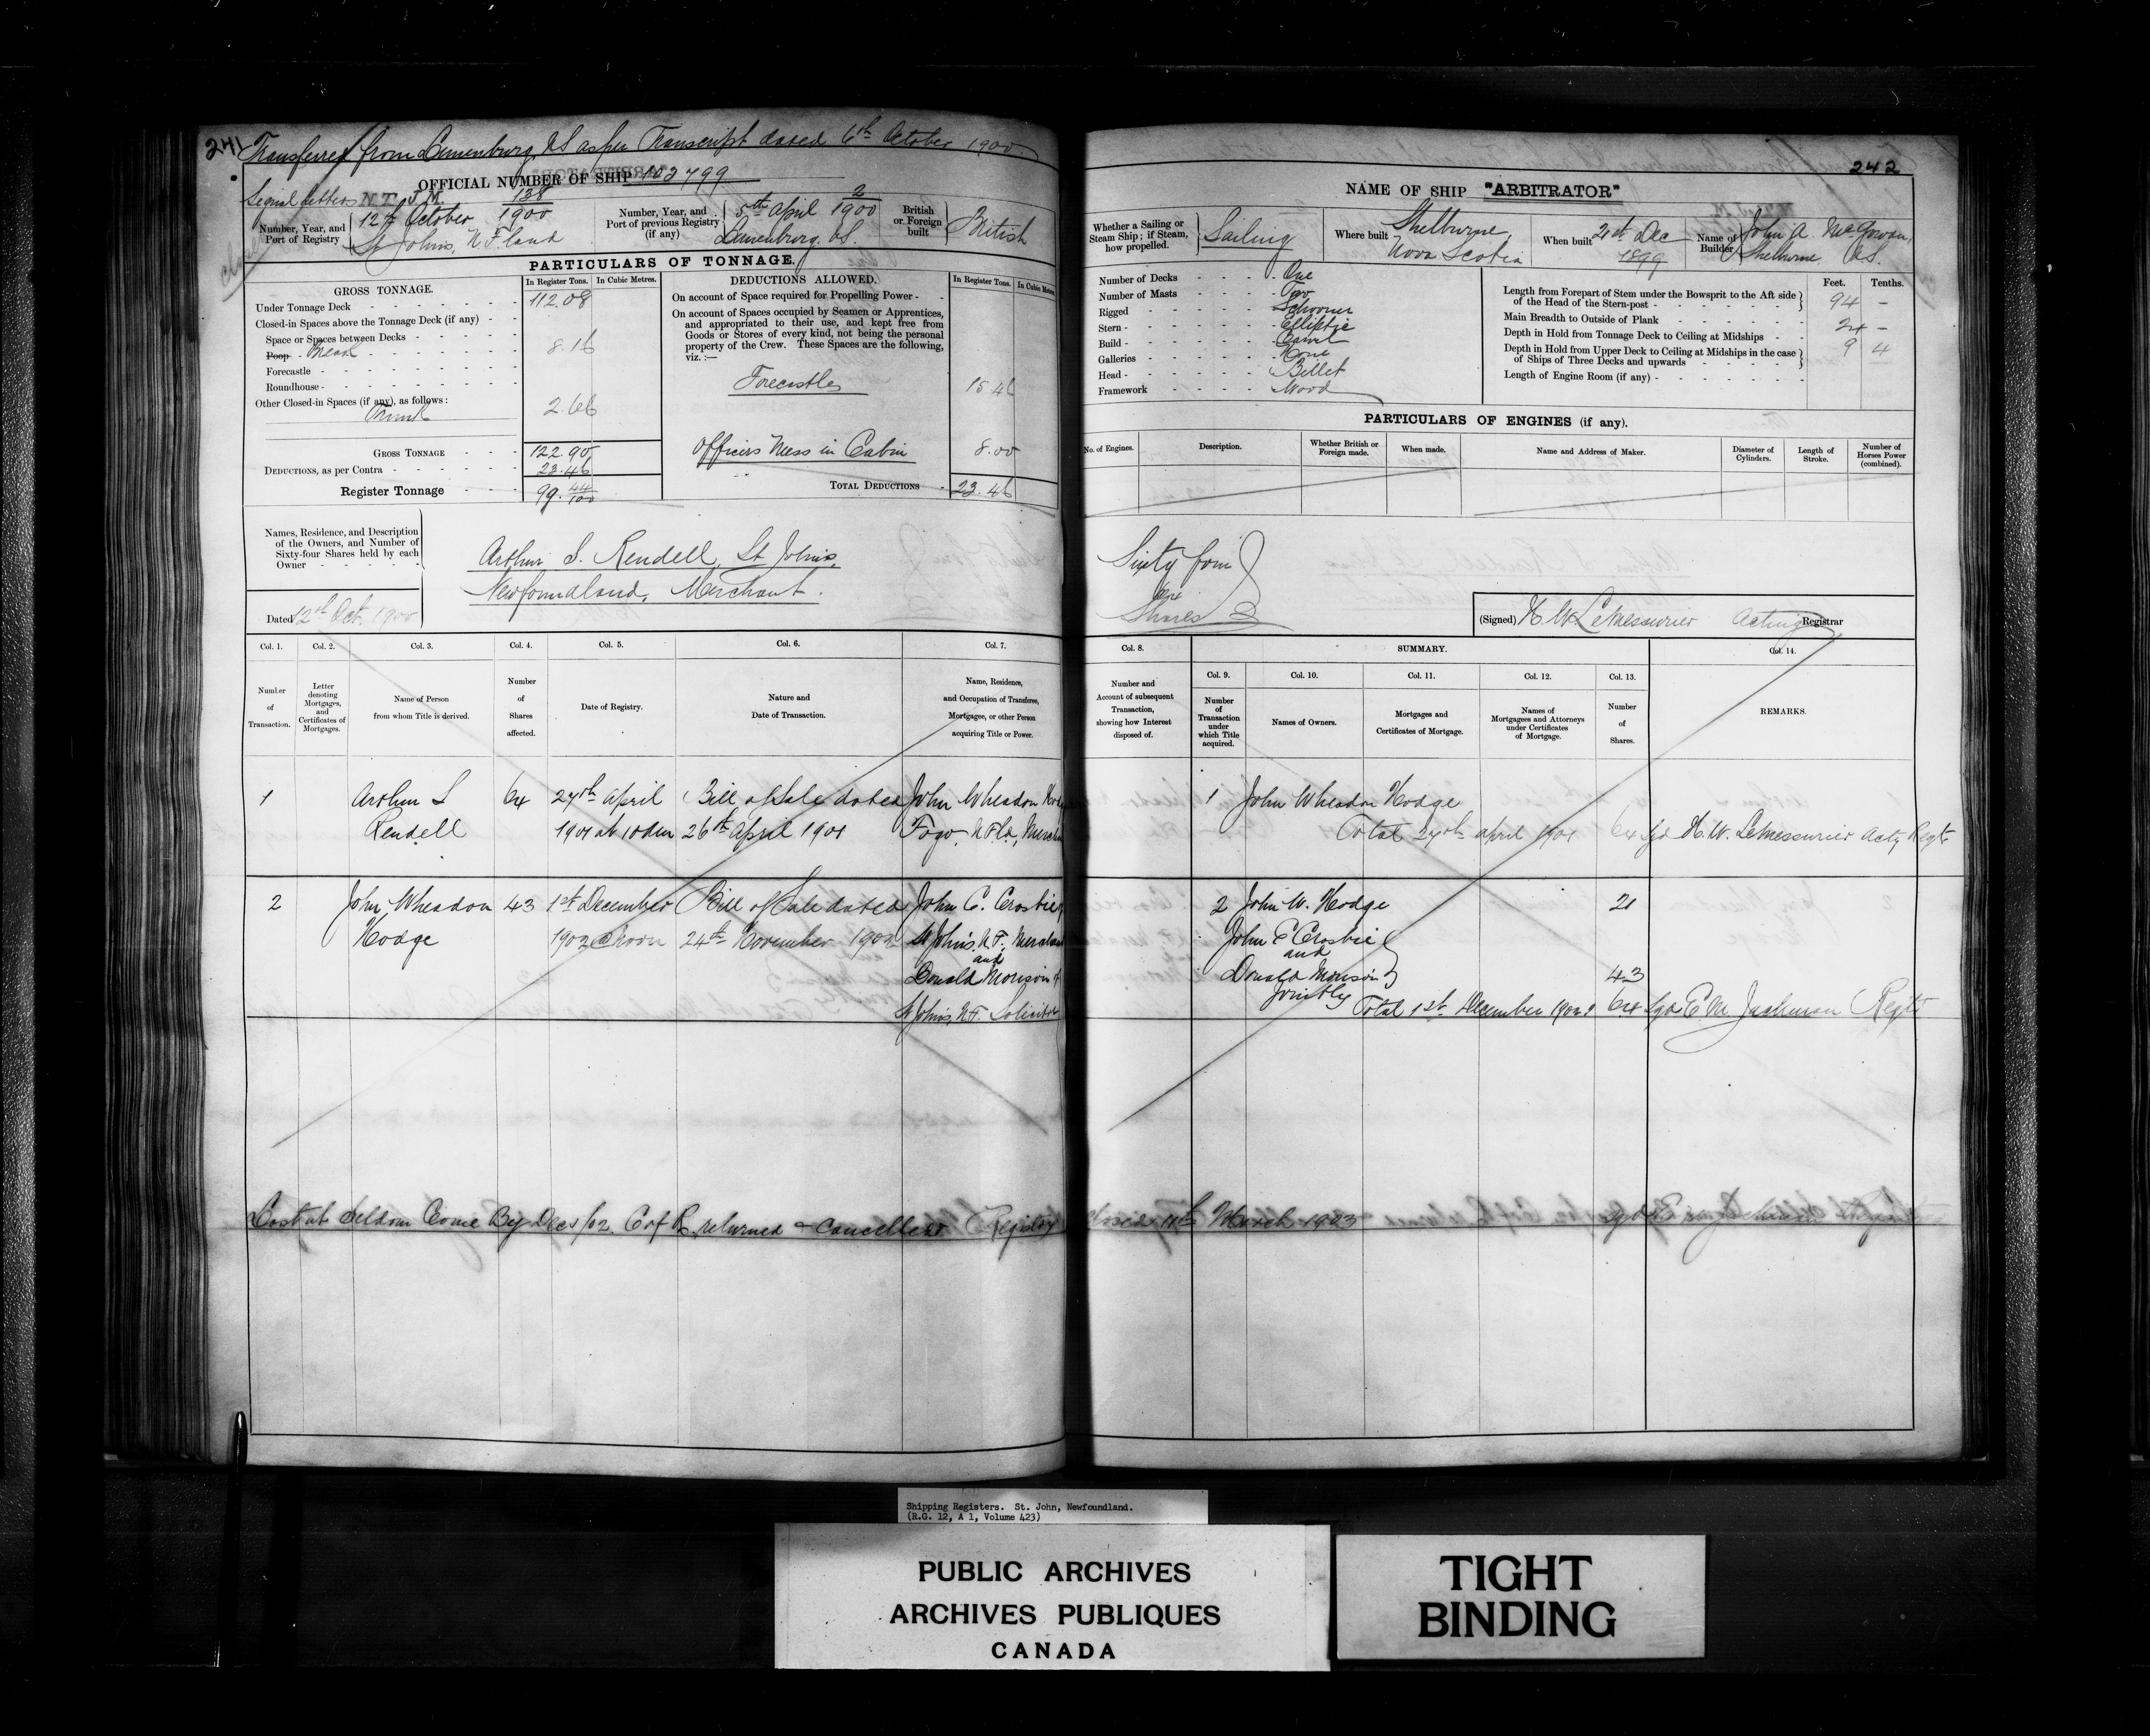 241
Transferred from Lunenburg, N.S. as per Transcript dated 6th October 1900
OFFICIAL NUMBER OF SHIP 103799
Signal Letters N.T.J.M.
Number, Year, and Port of Registry
138
12th October 1900
St Johns, N.F.land
Number, Year, and Port of previous Registry (if any)
2
5th April 1900
Lunenburg, N.S.
British or Foreign built
British
Closed
PARTICULARS OF TONNAGE.
GROSS TONNAGE.
In Register Tons.
In Cubic Metres.
Under Tonnage Deck 112.08
Closed-in Spaces above the Tonnage Deck (if any)
Space or Spaces between Decks
Poop Break 8.16
Forecastle
Roundhouse
Other Closed-in Spaces (if any), as follows:
Trunk 2.66
GROSS TONNAGE 122.90
DEDUCTIONS, as per Contra 23.46
Register Tonnage 99. 44/100
DEDUCTIONS ALLOWED.
In Register Tons.
In Cubic Metres
On account of Space required for Propelling Power
On account of Spaces occupied by Seamen or Apprentices,
and appropriated to their use, and kept free from
Goods or Stores of every kind, not being the personal
property of the Crew. These Spaces are the following,
viz. :—
Forecastle 15.46
Officers Mess in Cabin 8.00
TOTAL DEDUCTIONS 23.46
Names, Residence, and Description
of the Owners, and Number of
Sixty-four Shares held by each
Owner
Arthur S. Rendell, St Johns,
Newfoundland, Merchant.
Dated 12th Oct. 1900
Col. 1.
Number of Transaction.
Col. 2.
Letter denoting Mortgages, and Certificates of Mortgages.
Col. 3.
Name of Person from whom Title is derived.
Col. 4.
Number of Shares affected.
Col. 5.
Date of Registry.
Col. 6.
Nature and Date of Transaction.
Col. 7.
Name, Residence, and Occupation of Transferee, Mortgagee, or other Person acquiring Title or Power.
1 Arthur S 64 27th April Bill of Sale dated John Wheadon Hodge
Rendell 1901 at 10 am 26th April 1901 Fogo, N.F.ld, Merchant
2 John Wheadon 43 1st December Bill of Sale dated John C. Crosbie
Hodge 1902 @ noon 24th November 1902 St John's, N.F. Merchant
and
Donald Morison of
St John's, N.F. Solicitor
242
NAME OF SHIP "ARBITRATOR"
Whether a Sailing or Steam Ship; if Steam, how propelled.
Sailing
Where built
Shelburne,
Nova Scotia
When built
21st Dec
1899
Name of Builder
John A. McGowan,
Shelburne N.S.
Number of Decks One
Number of Masts Two
Rigged Schooner
Stern Elliptic
Build Carvel
Galleries None
Head Billet
Framework Wood
Feet. Tenths.
Length from Forepart of Stem under the Bowsprit to the Aft side
of the Head of the Stern-post 94 -
Main Breadth to Outside of Plank 24 -
Depth in Hold from Tonnage Deck to Ceiling at Midships 9 4
Depth in Hold from Upper Deck to Ceiling at Midships in the case
of Ships of Three Decks and upwards
Length of Engine Room (if any)
PARTICULARS OF ENGINES (if any).
No. of Engines.
Description.
Whether British or Foreign made.
When made.
Name and Address of Maker.
Diameter of Cylinders.
Length of Stroke.
Number of Horses Power (combined).
Sixty four
64
Shares
(Signed) H. W. LeMessurier Acting Registrar
Col. 8.
Number and Account of subsequent Transaction, showing how Interest disposed of.
SUMMARY.
Col. 9.
Number of Transaction under which Title acquired.
Col. 10.
Names of Owners.
Col. 11.
Mortgages and Certificates of Mortgage.
Col. 12.
Names of Mortgagees and Attorneys under Certificates of Mortgage.
Col. 13.
Number of Shares.
Col. 14.
REMARKS.
1 John Wheadon Hodge
Total 27th April 1901 64 Sgd H. W. LeMessurier Actg Regtr
2 John W. Hodge 21
John C Crosbie
and
Donald Morison 43
Jointly
Total 1st December 1902 64 Sgd
Regtr
Lost at Seldom Come By Dec 5/02. C of R returned & cancelled Registry closed 11th March 1903
Shipping Registers. St. John, Newfoundland.
(R.G. 12, A 1, Volume 423)
PUBLIC ARCHIVES
ARCHIVES PUBLIQUES
CANADA
TIGHT
BINDING